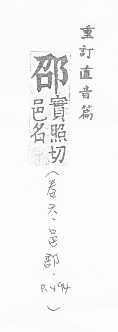 重訂直音篇
邵
實照切
邑名
(卷六·邑部·
P.494)